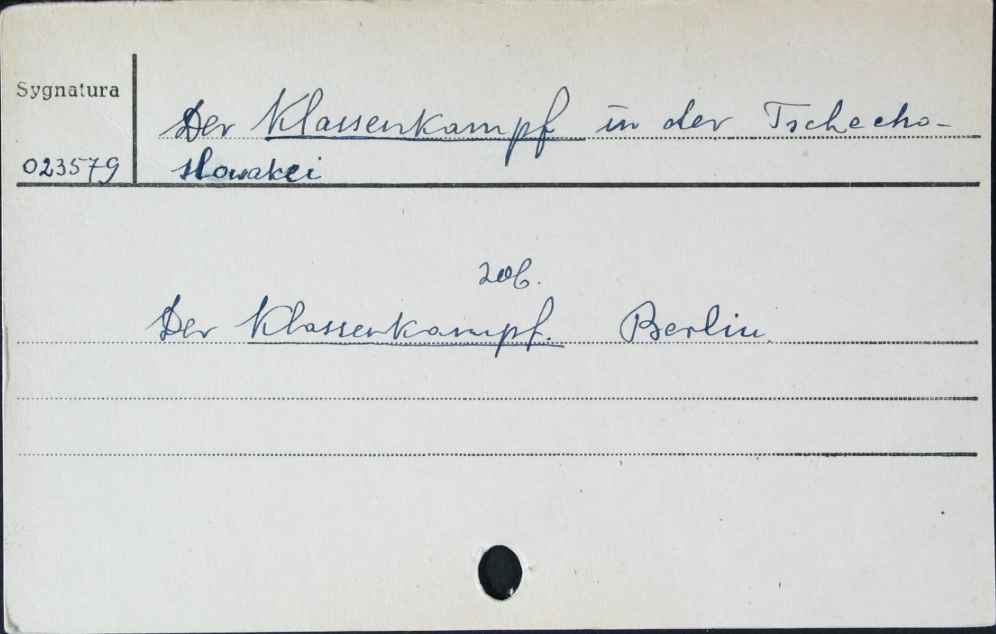 Sygnatura
Der Klassenkampf in der Tschecho-
023579 slowakei
zob.
Der Klassenkampf. Berlin.